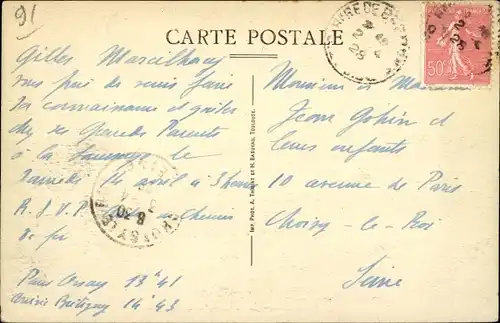 91
CARTE POSTALE
Gilles Marcilhacy
vous prie de venir faire
sa connaissance et goûter
chez ses Grands Parents
à la le
Samedi 14 avril à 3 heures
R.S.V.P. Chemin
de fer
Paris Orsay 13h41
arrivée Brétigny 14h43
IMP. PHOT. A. THIRIET ET H. BASUYAU, TOULOUSE.
Monsieur et Madame
Jean Gohin et
leurs enfants
10 avenue de Paris
Choisy-le-Roi
Seine
GARE DE
50c
CHOISY-LE-R
8 30